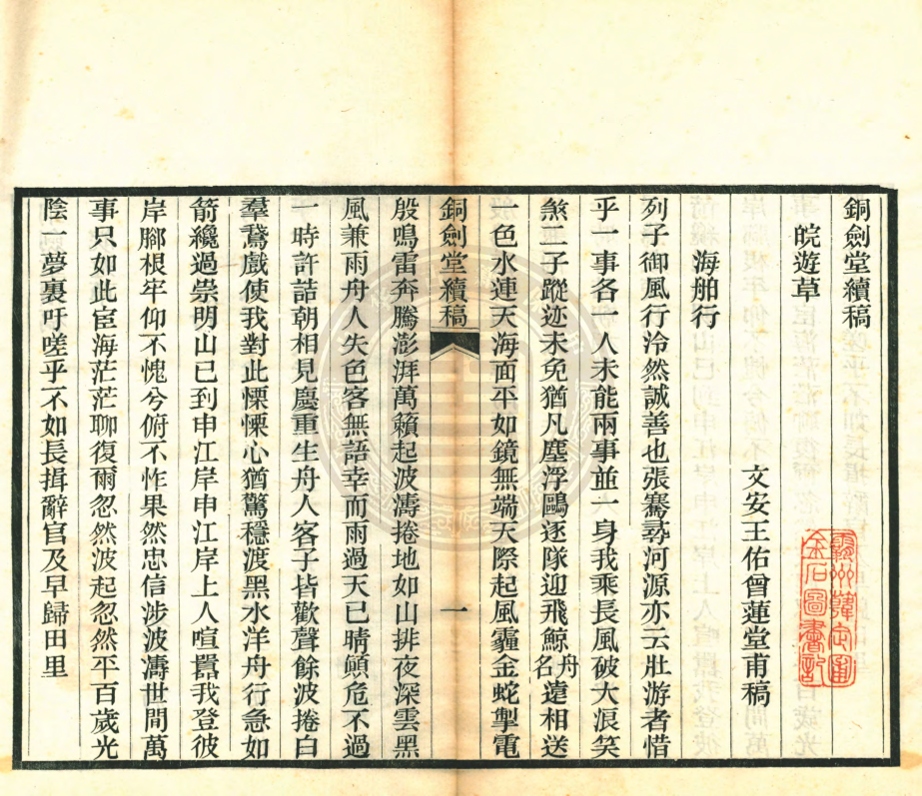 銅劍堂續稿
皖遊草
文安王佑曾蓮堂甫稿
海舶行
列子御風行泠然誠善也張騫尋河源亦云壯游者惜
乎一事各一人未能兩事並一身我乘長風破大浪笑
煞二子蹤迹未免猶凡塵浮鷗逐隊迎飛鯨舟名遠相送
一色水連天海面平如鏡無端天際起風霾金蛇掣電
銅劍堂續稿
一
殷鳴雷奔騰澎湃萬籟起波濤捲地如山排夜深雲黑
風兼雨舟人失色客無語幸而雨過天已晴顛危不過
一時許詰朝相見慶重生舟人客子皆歡聲餘波捲白
羣鵞戲使我對此慄慄心猶驚穩渡黑水洋舟行急如
箭纔過崇明山已到申江岸申江岸上人喧囂我登彼
岸腳根牢仰不愧兮俯不怍果然忠信涉波濤世間萬
事只如此宦海茫茫聊復爾忽然波起忽然平百歲光
陰一夢裏吁嗟乎不如長揖辭官及早歸田里